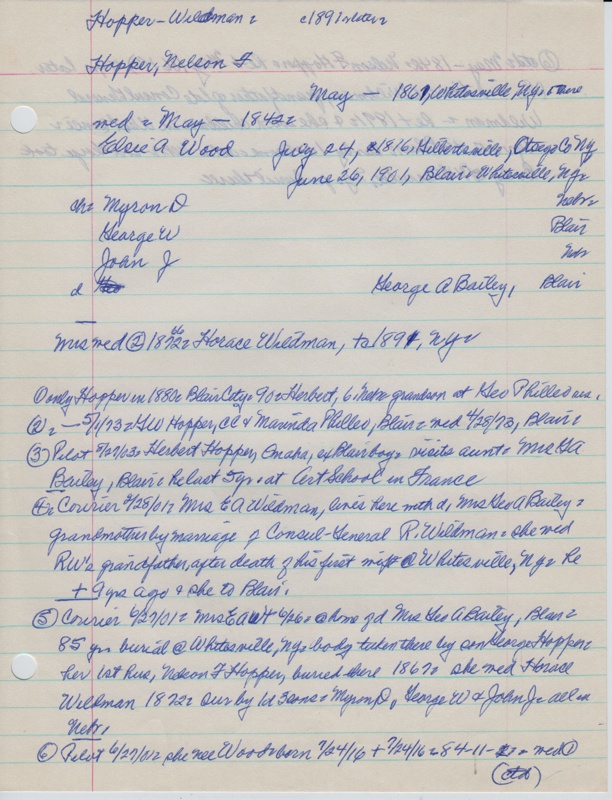 Hopper-Wildman = c1891 + later =
Hopper, Nelson F
May — 1867, Whitesville, Ny = there
med = May — 1842 =
Elsie A Wood July 24, c1816, Gilbertsville, Otsego Co Ny
June 26, 1901, Blair = Whitesville, Ny =
ch = Myron D Nebr =
George W Blair
John J Neb
d George A Bailey, Blair
Mrs med (2) 1872 = Horace Wildman, + 1891, Ny =
only Hopper in 1880 = Blair City = 90 = Herbert, 6, Neb = grandson at Geo Philleo res.
(2) = 5/1/73 = GW Hopper, CC & Marinda Philleo, Blair = med 4/28/73, Blair =
(3) Pilot 5/27/03 = Herbert Hopper, Omaha, ex Blair boy = visits aunt = Mrs GA
Bailey, Blair = he last 5 yrs at Art School in France
(4) = Courier 4/25/01 = Mrs E A Wildman, lives here with d, Mrs Geo A Bailey =
grandmother by marriage of Consul-General R. Wildman = she med
RW's grandfather, after death of his first wife @ Whitesville, Ny = he
+ 9 yrs ago & she to Blair.
(5) Courier 6/27/01 = Mrs E A W + 6/26 = @ home of d Mrs Geo A Bailey, Blair =
85 yrs burial @ Whitesville, Ny = body taken there by son George Hopper =
her 1st hus, Nelson F Hopper, buried there 1867 = she med Horace
Wildman 1872 = sur by 1d 3 sons = Myron D, George W & John J = all in
Nebr.
(6) Pilot 6/27/01 = she nee Wood = born 7/24/16 + 84-11- = med (1)